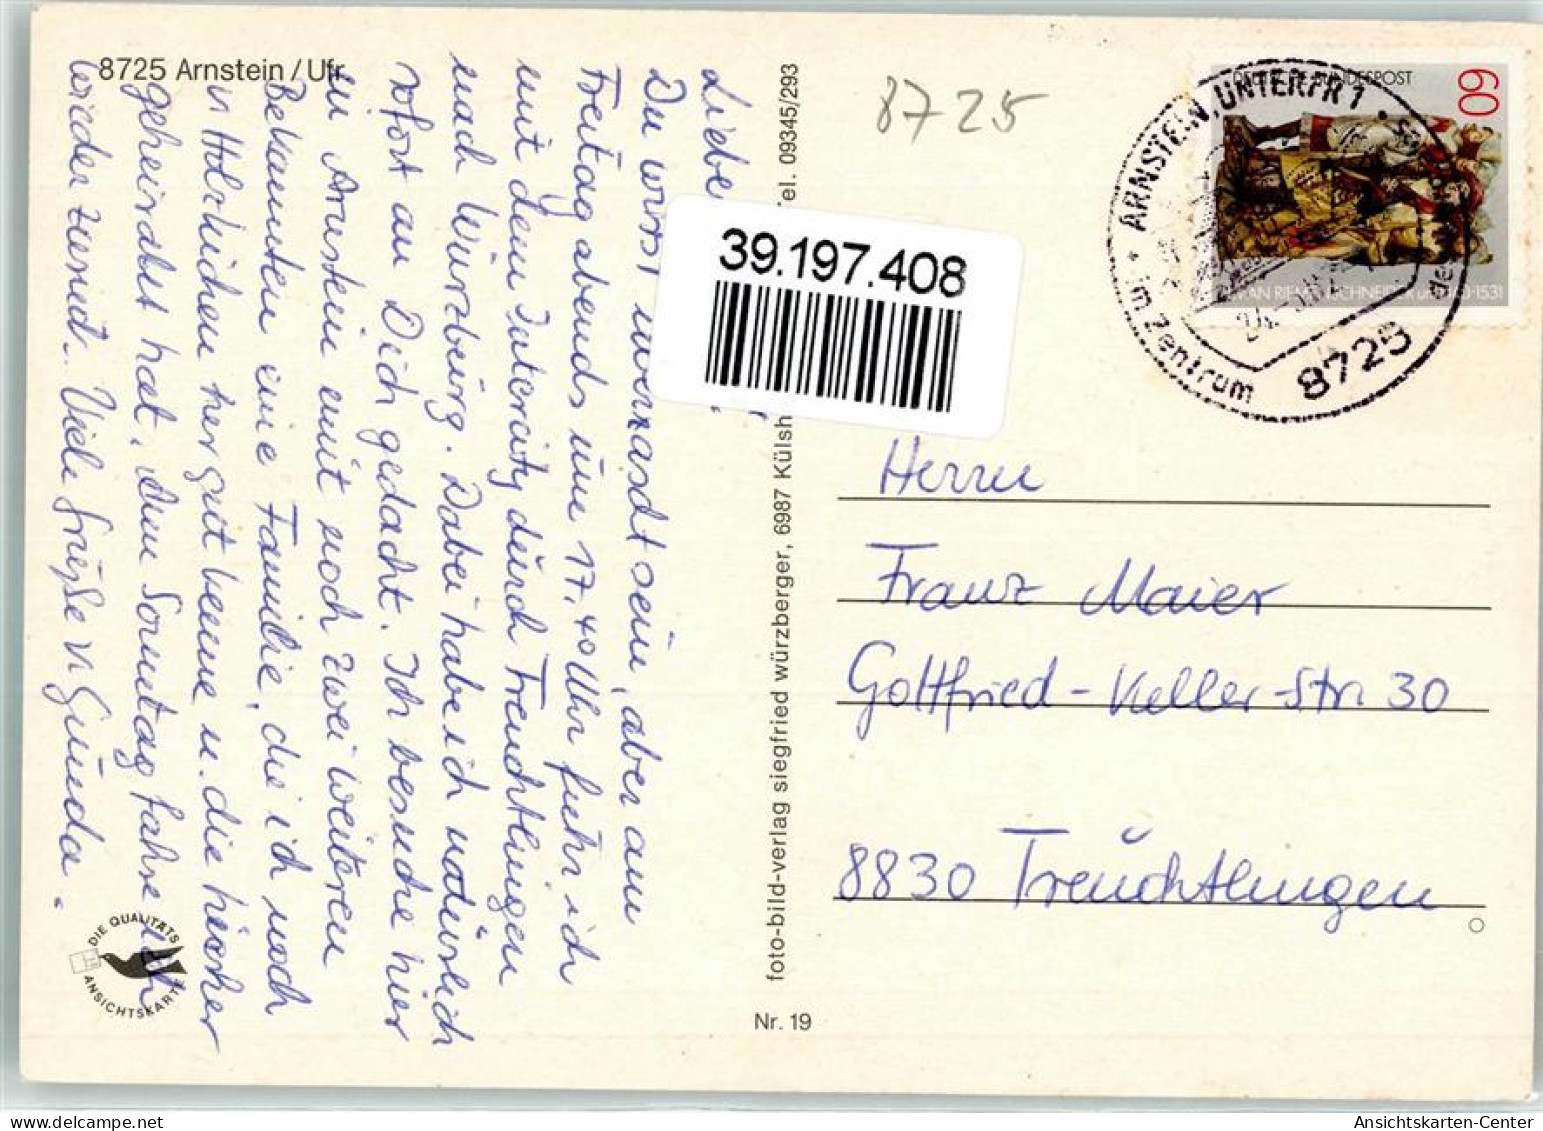 8725 Arnstein / Ufr.
Liebe
Du wirst
sein, aber am
Freitag abends um 17.40 Uhr fuhr ich
mit dem Intercity durch Treuchtlingen
nach Würzburg. Dabei habe ich natürlich
sofort an Dich gedacht. Ich besuche hier
in Arnstein mit noch zwei weiteren
Bekannten eine Familie, die ich noch
in Holzkirchen her gut kenne u. die hierher
geheiratet hat. Am Sonntag fahre ich
wieder zurück. Viele Grüße v. Gunda.
DIE QUALITÄTS
ANSICHTSKARTE
foto-bild-verlag siegfried würzberger, 6987 Külsh
Tel. 09345/293
Nr. 19
39.197.408
8725
DEUTSCHE BUNDESPOST
60
TILMAN RIEMENSCHNEIDER UM 1460-1531
ARNSTEIN, UNTERFR 1
* im Zentrum
8725
Herrn
Franz Maier
Gottfried-Keller-Str. 30
8830 Treuchtlingen
delcampe.net
Ansichtskarten-Center